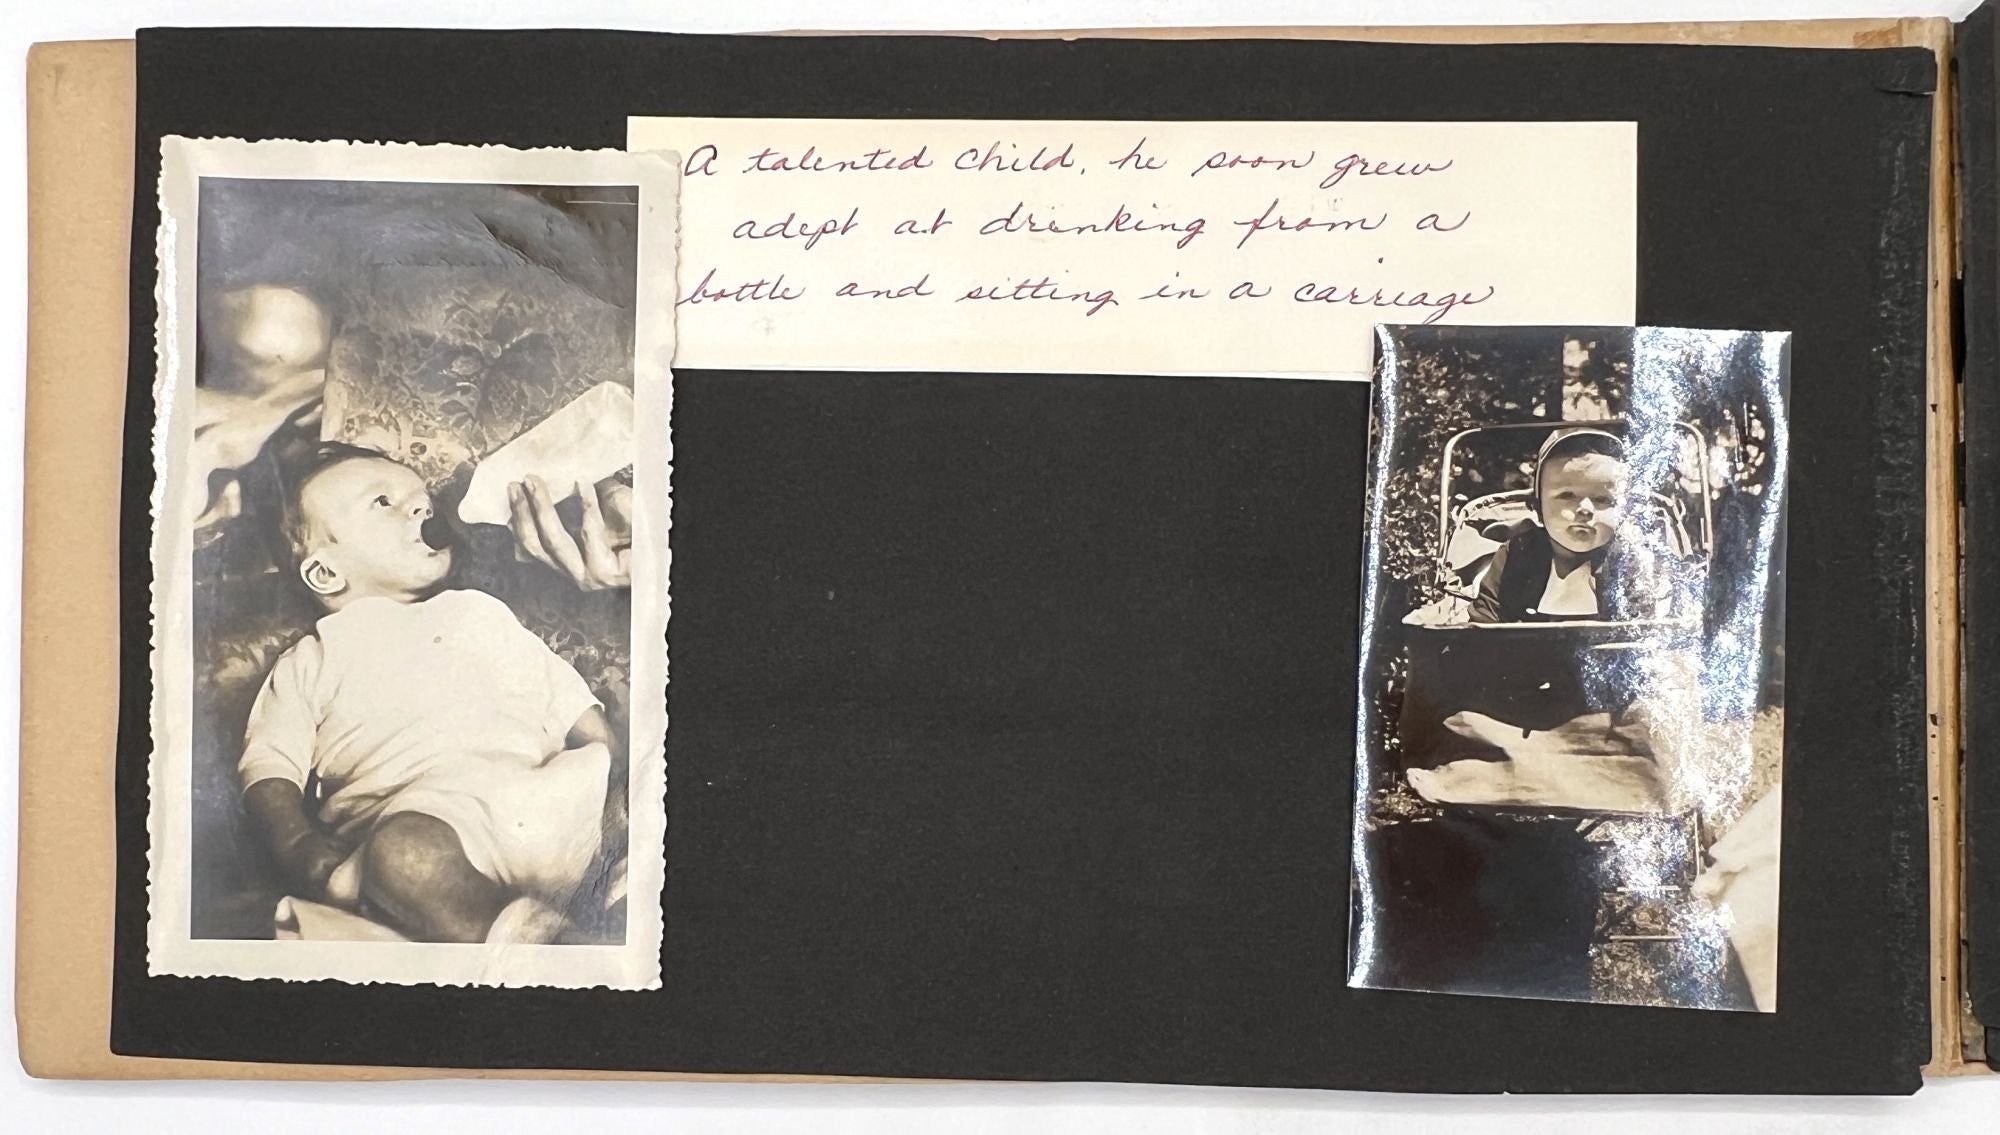 A talented child, he soon grew
adept at drinking from a
bottle and sitting in a carriage